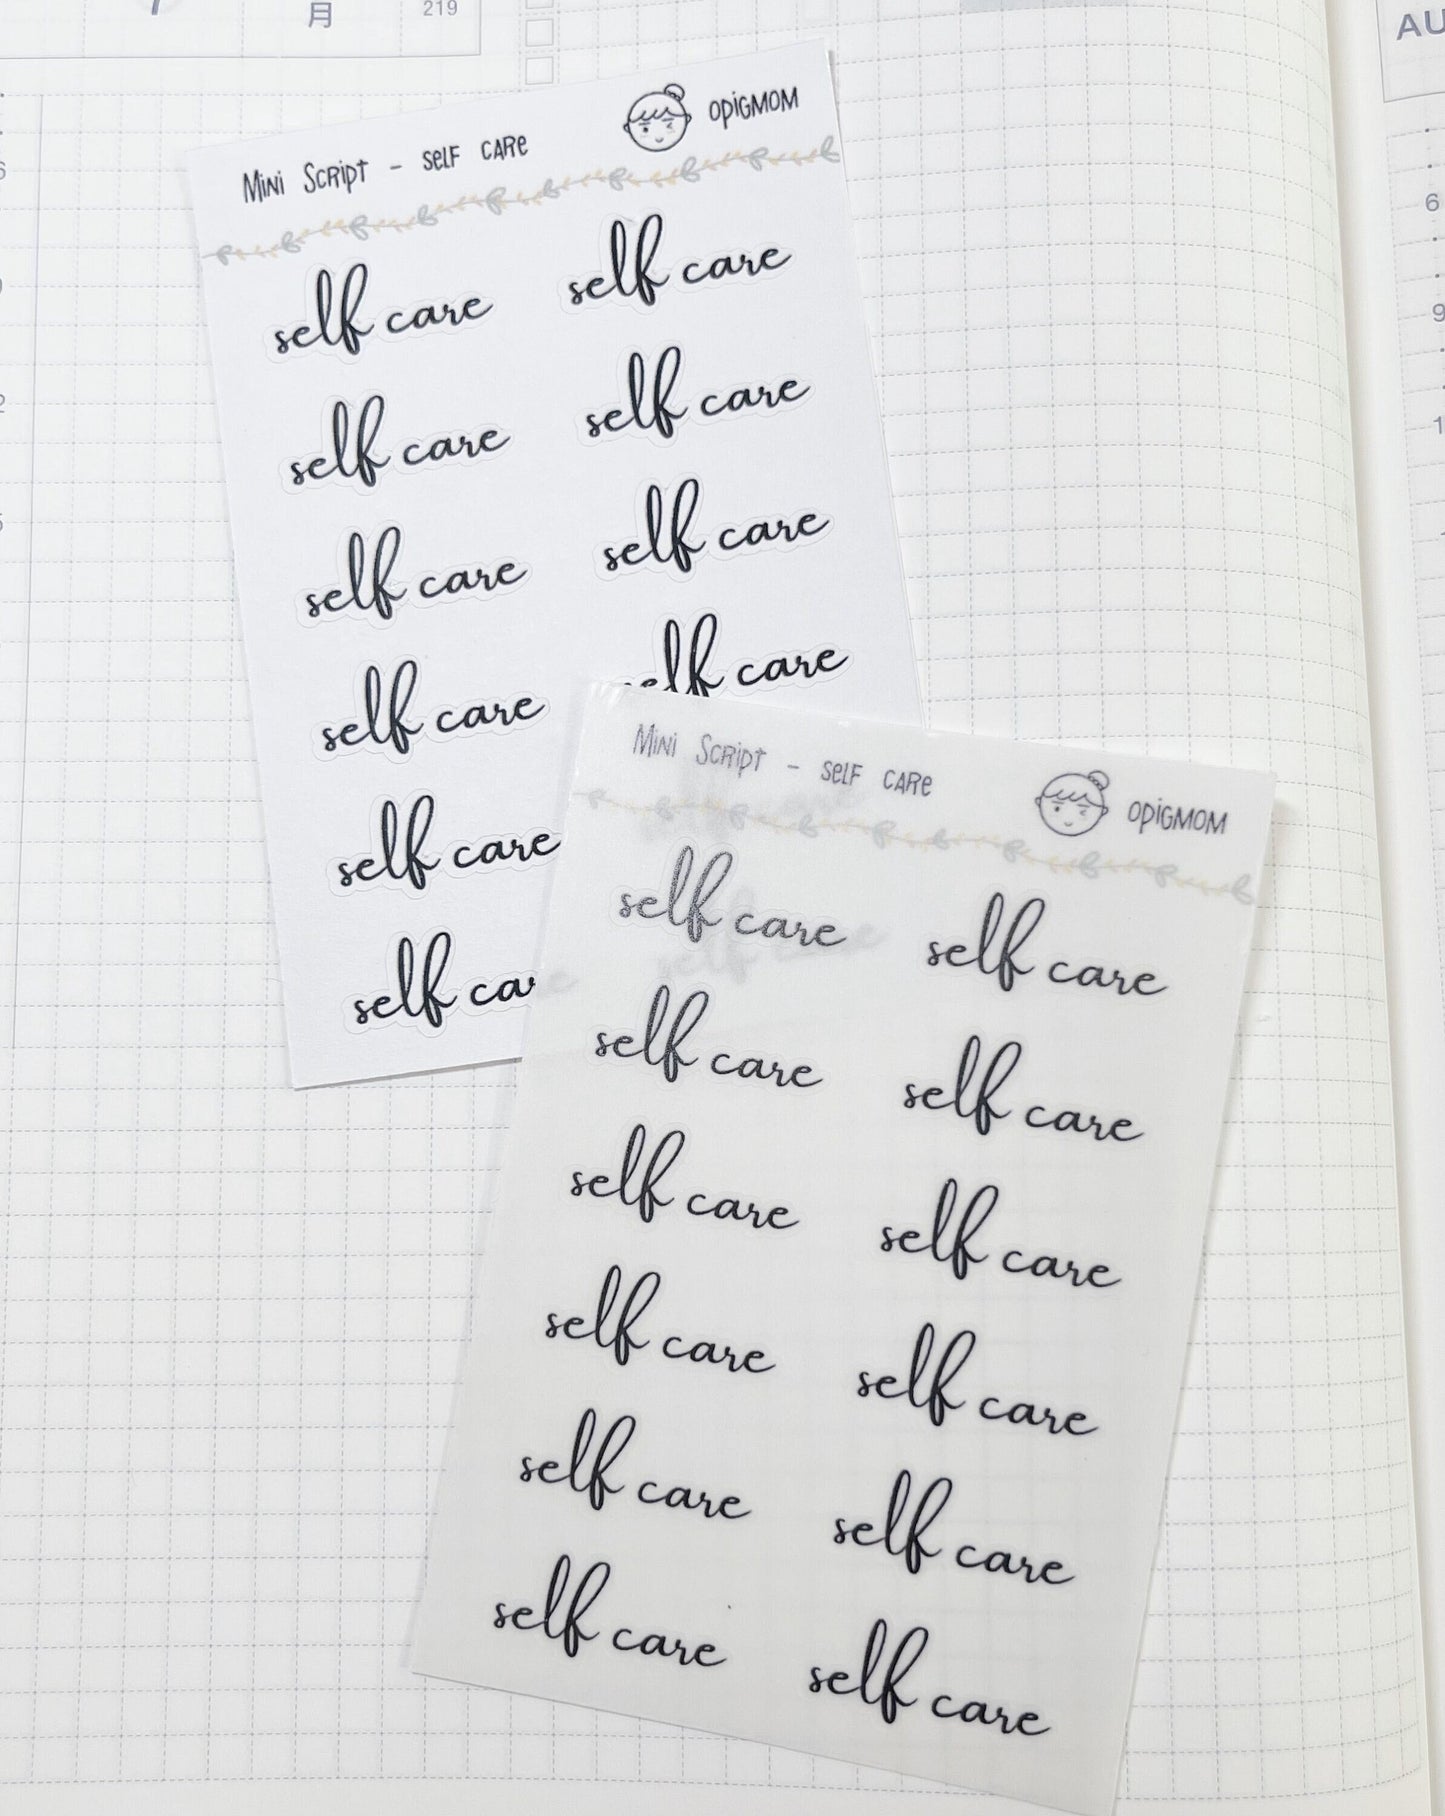 月 219
AU
Mini Script - self care OPIGMOM
self care self care
self care self care
self care self care
self care self care
self care
self
Mini Script - self care OPIGMOM
self care self care
self care self care
self care self care
self care self care
self care self care
self care self care
6
9